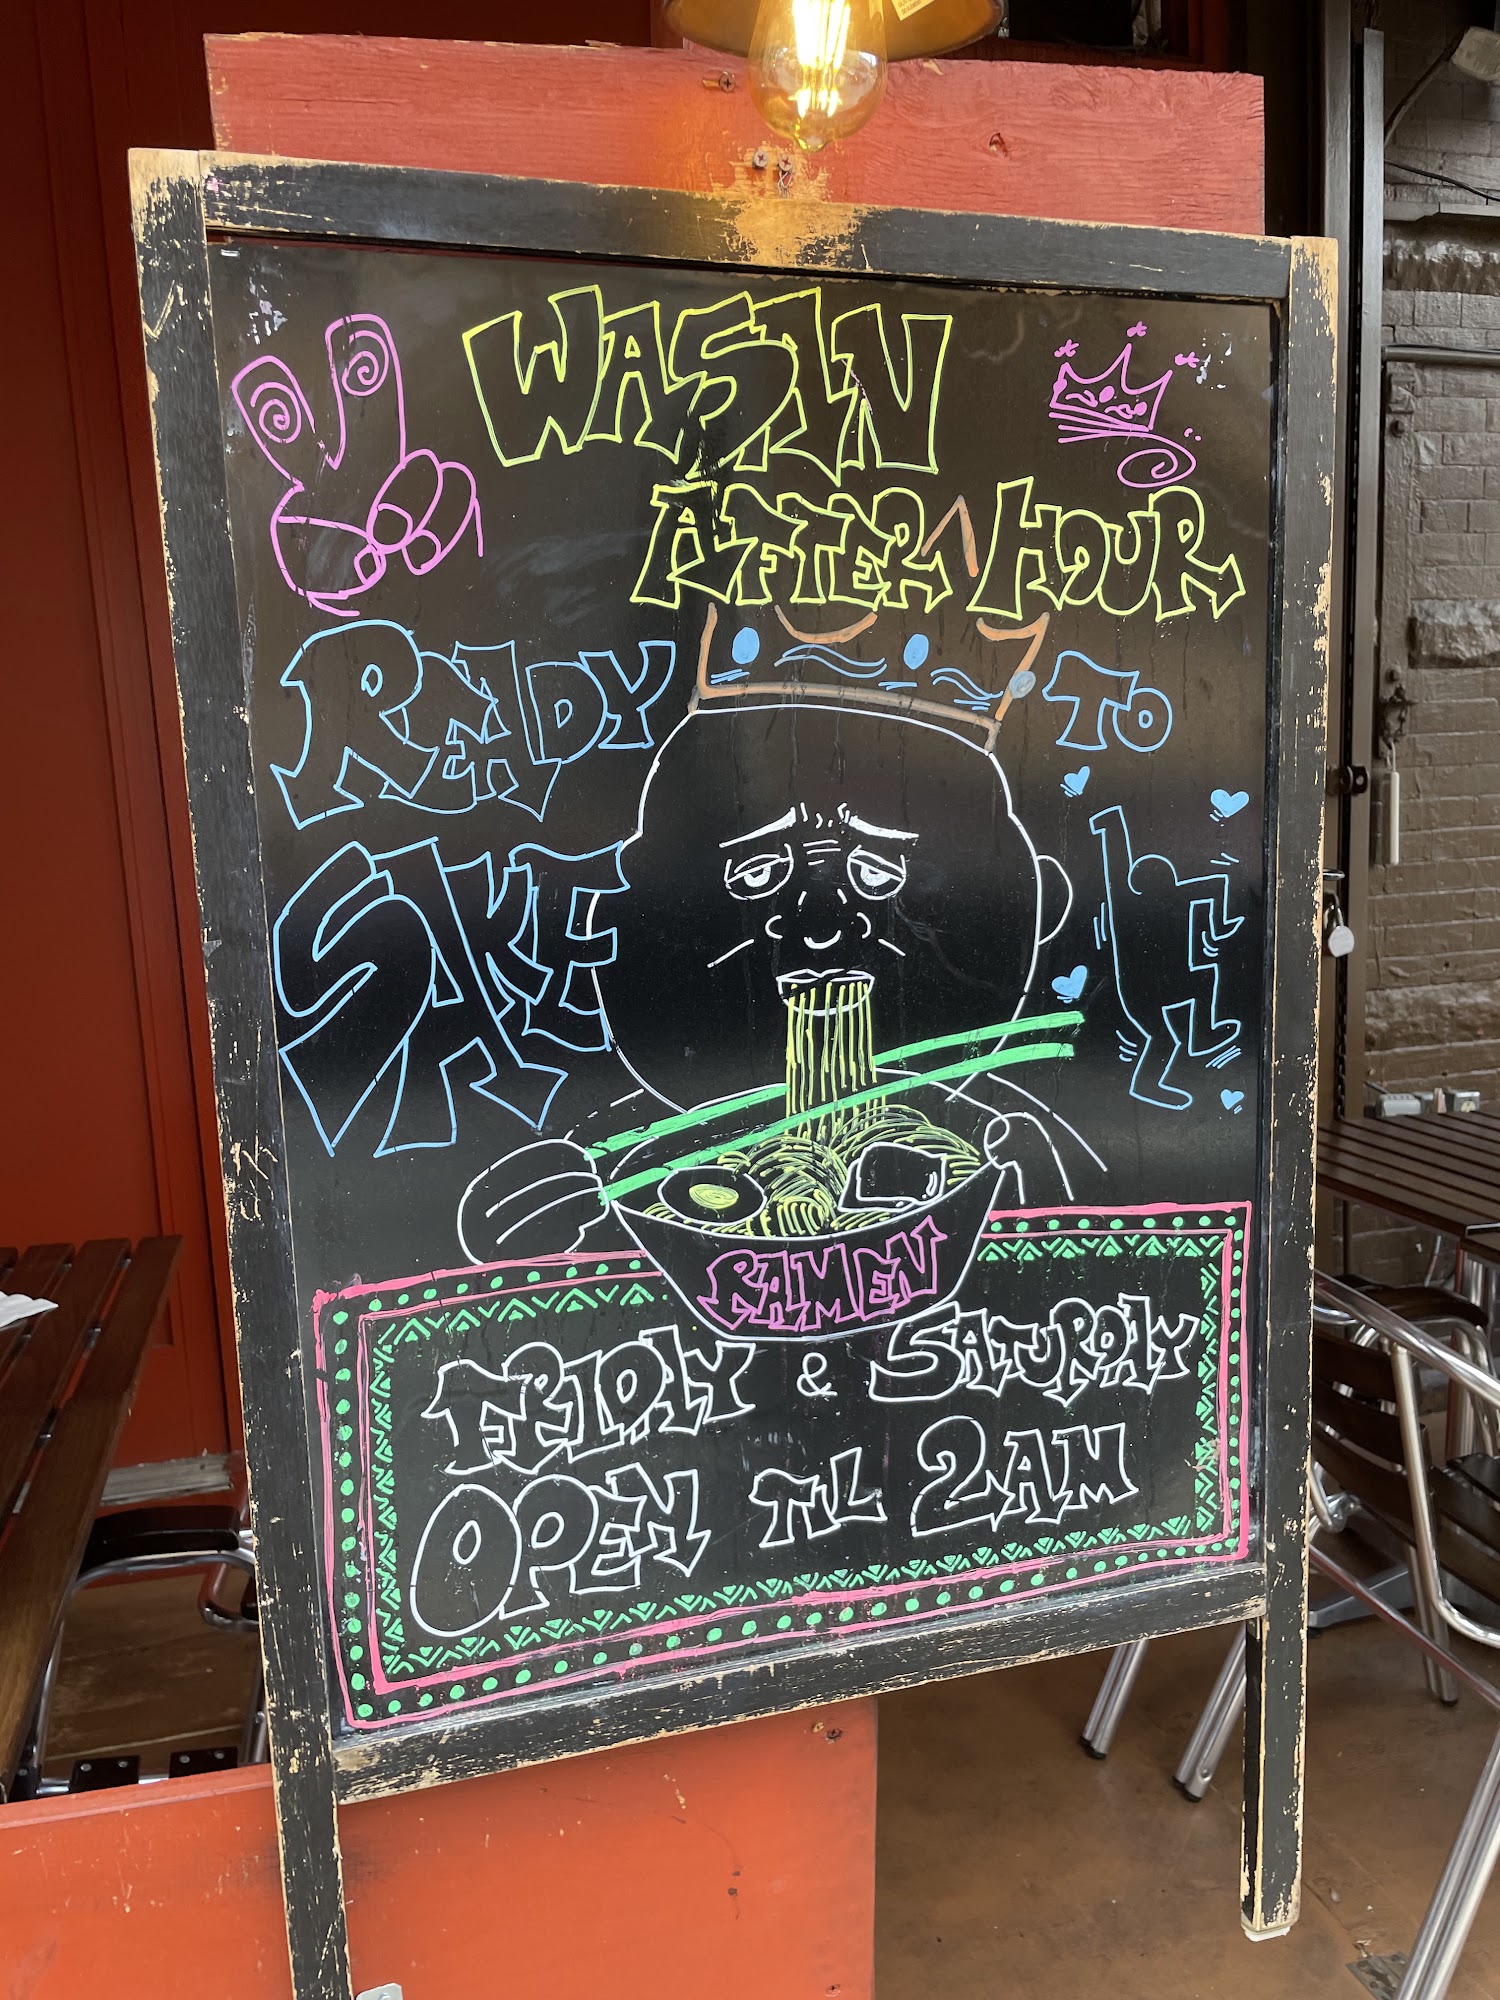 WASAN
AFTER HOUR
READY TO
SAKE
RAMEN
FRIDAY & SATURDAY
OPEN TIL 2AM